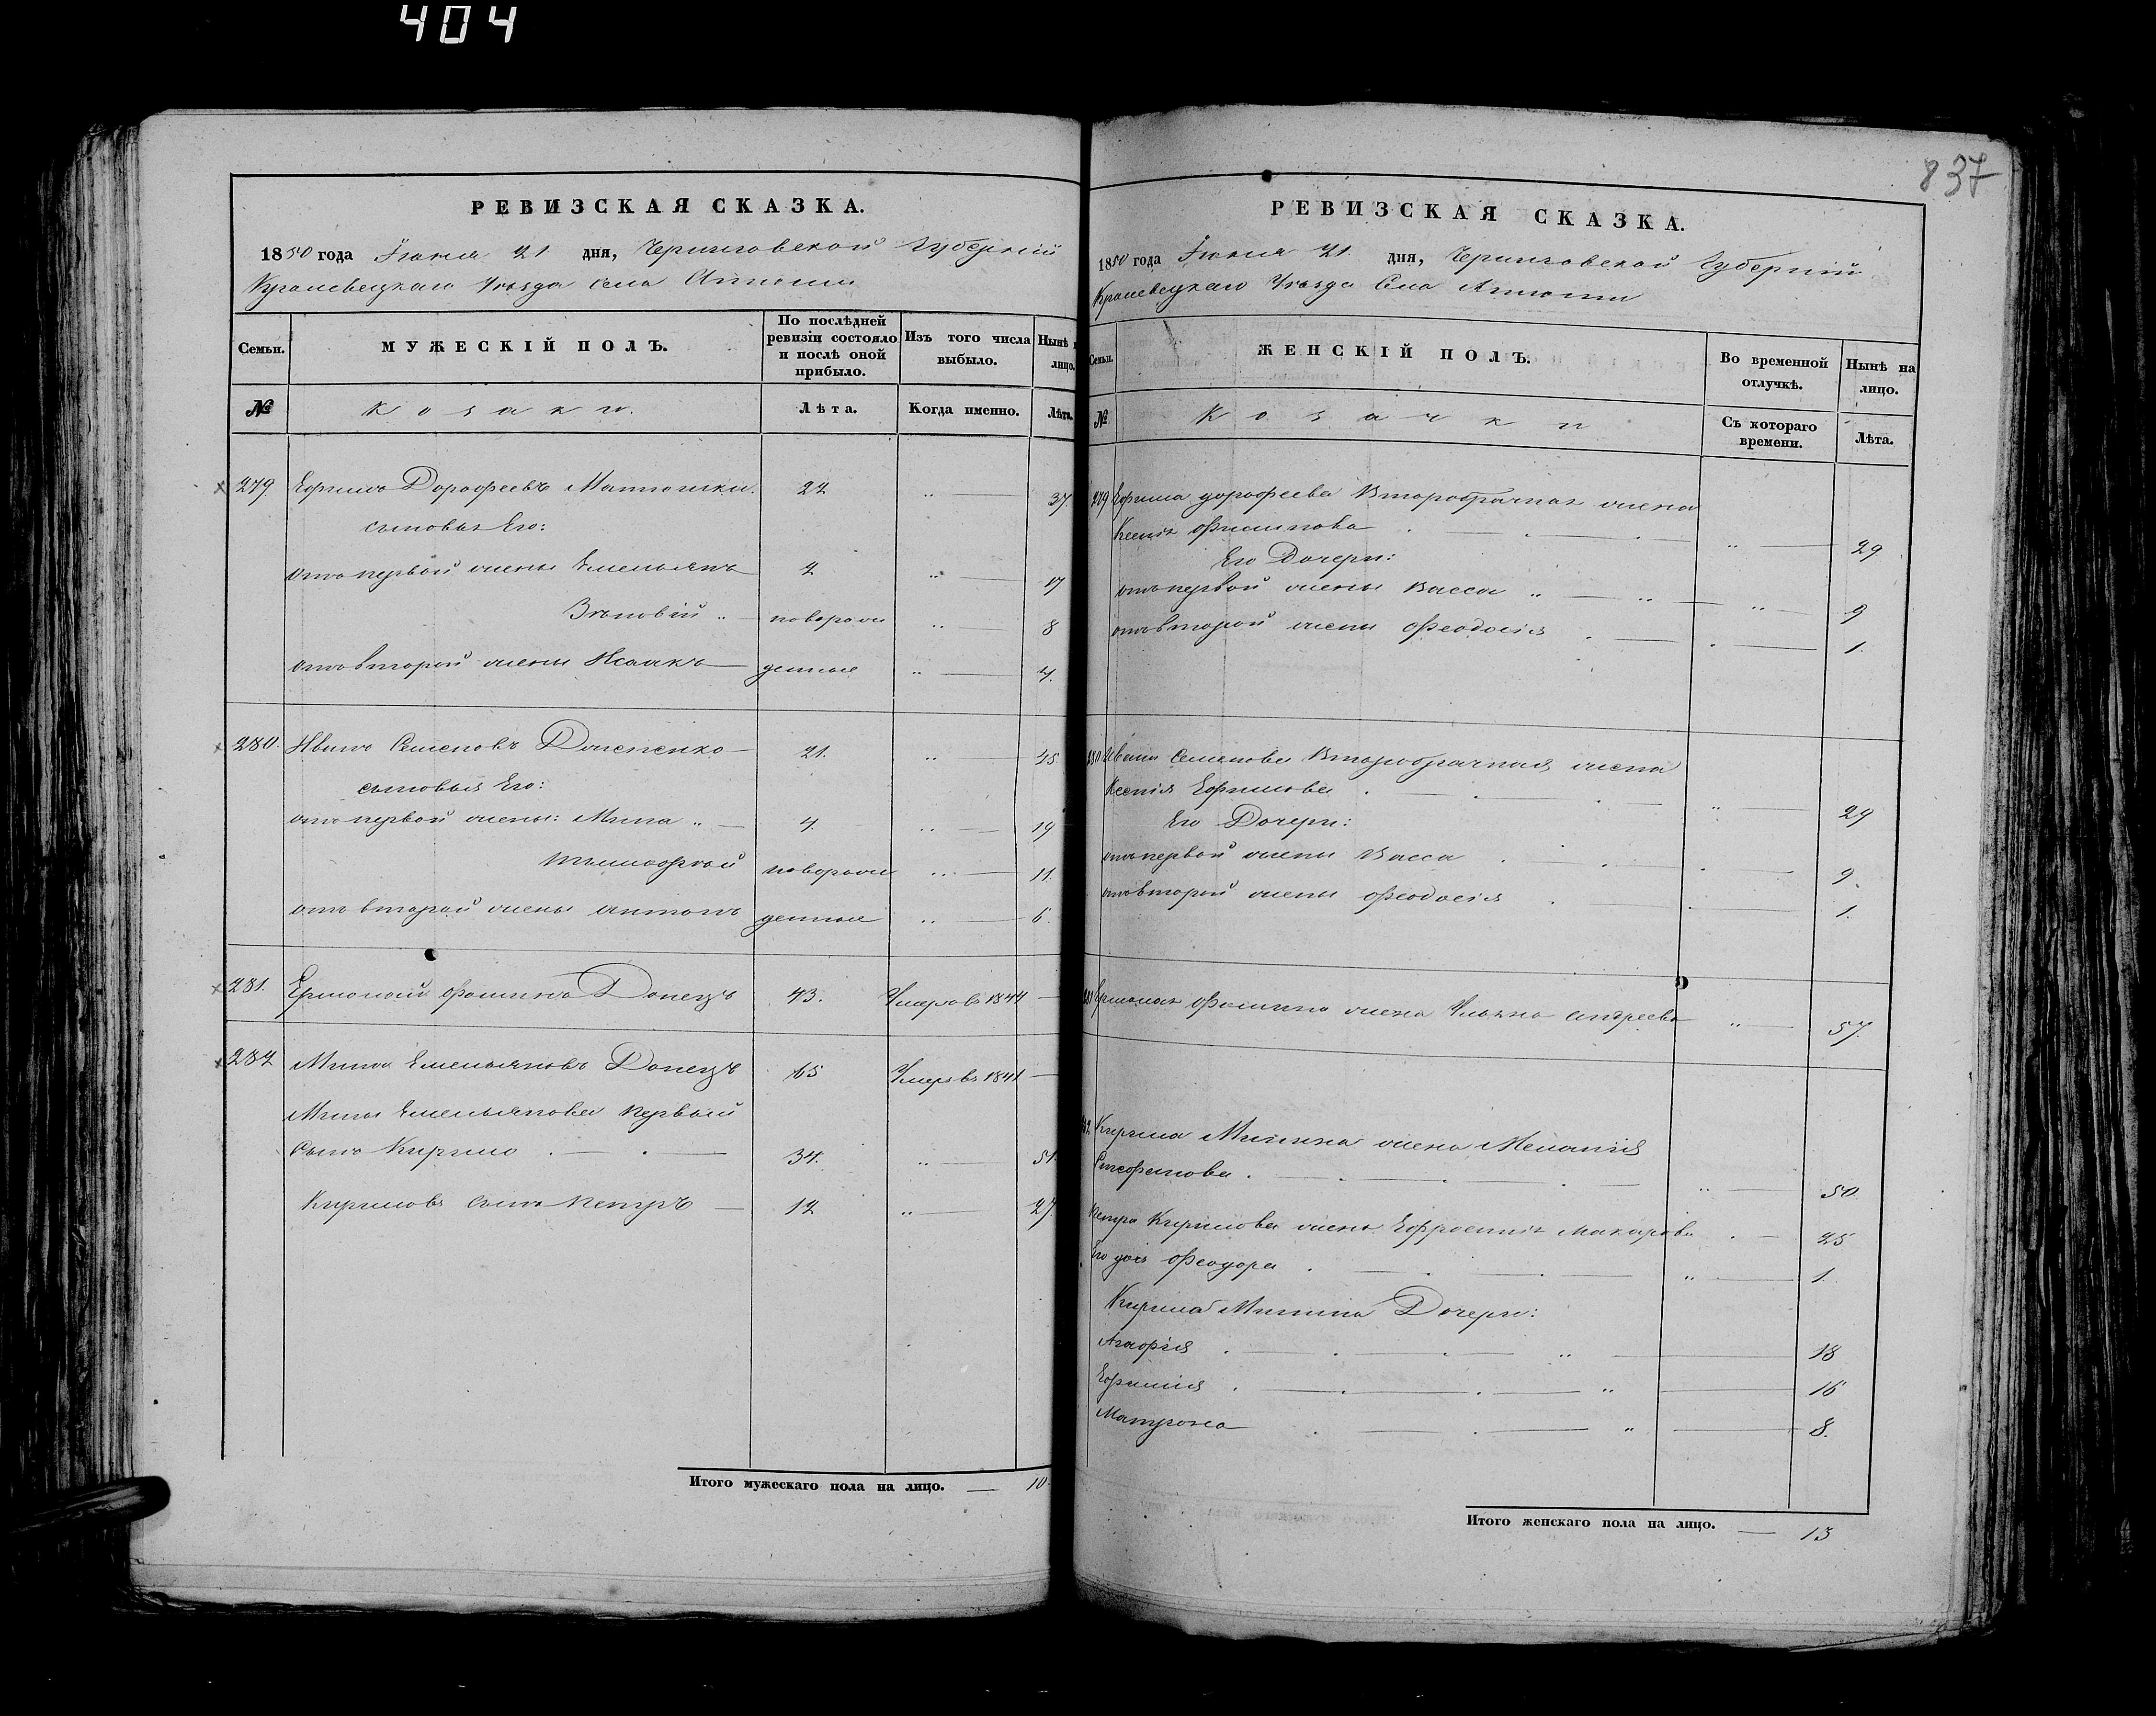 404
837
РЕВИЗСКАЯ СКАЗКА.
1850 года Іюня 21 дня, Черниговской Губерніи
Кролевецкаго Уѣзда села
Семьи.
МУЖЕСКІЙ ПОЛЪ.
По послѣдней ревизіи состояло и послѣ оной прибыло.
Изъ того числа выбыло.
Нынѣ на лицо.
№
Козаки.
Лѣта.
Когда именно.
Лѣта.
279 Ефимъ Дорофеевъ 22 " 37.
сыновья Его:
отъ первой жены Емельянъ 2 " 17
Зѣновій " новорож " 8
отъ второй жены Исаакъ денные " 4.
280. Иванъ Семеновъ 21. " 45
сыновья Его:
отъ первой жены: Мина " 4. " 19
Тимофей новорож " 11.
отъ второй жены Антонъ денные " 6.
281. Ермолай Фоминъ Донецъ 43. Умеръ въ 1844
282 Мина Емельяновъ Донецъ 65 Умеръ въ 1841
Мины Емельянова первый
сынъ Кирило 34. " 51.
Кириловъ сынъ Петръ 12 " 27.
Итого мужескаго пола на лицо. 10
РЕВИЗСКАЯ СКАЗКА.
1850 года Іюня 21. дня, Черниговской Губерніи
Кролевецкаго Уѣзда Села
Семьи.
ЖЕНСКІЙ ПОЛЪ.
Во временной отлучкѣ.
Нынѣ на лицо.
№
Козачки
Съ котораго времени.
Лѣта.
279 Ефима дорофеева Второбрачная жена
Ксенія Филипова " 29
Его Дочери:
отъ первой жены Васса " 9
отъ второй жены Феодосія 1.
280 Ивана Семенова Второбрачная жена
Ксенія Ефимова " 29
Его Дочери:
отъ первой жены Васса 9.
отъ второй жены Феодосія 1.
281 Ермолая Фомина жена Ульяна Андреева " 57.
282 Кирила Минина жена Меланія
" 50
Петра Кирилова жена Ефросинія Макарова 25
Его дочь Феодора " 1.
Кирила Минина Дочери:
Агафія " 18
Ефимія " 16
Матрона " 8.
Итого женскаго пола на лицо. 13